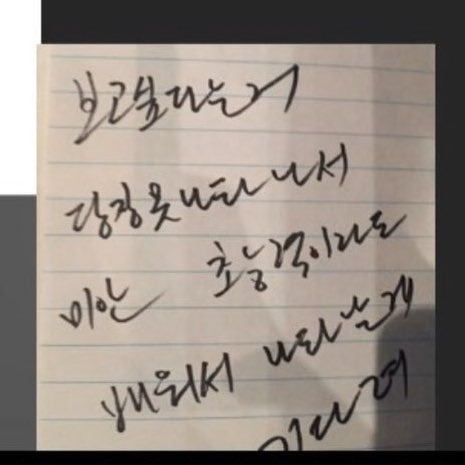 보고싶다는거
당장못나타나서
미안 초능력이라도
배워서 나타날게
기다려